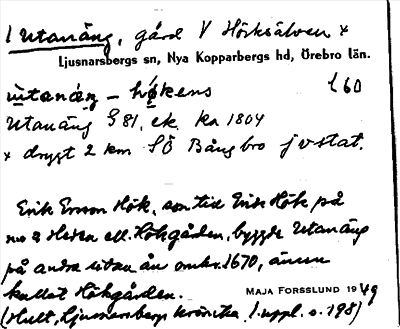 1 Utanäng, gård V Hörksälven x
Ljusnarsbergs sn, Nya Kopparbergs hd, Örebro län.
ùtanä́ng – hö́kens l60
Utanäng § 81, ek. ka 1804
x drygt 2 km SÖ Bångbro jvstat.
Erik Ersson Hök, son till Erik Hök på
no 2 Heden ell. Hökgården, byggde Utanäng
på andra sidan ån omkr. 1670, även
kallat Hökgården.
MAJA FORSSLUND 1949
(Hult, Ljusnarsbergs krönika, 1. uppl. s. 198)